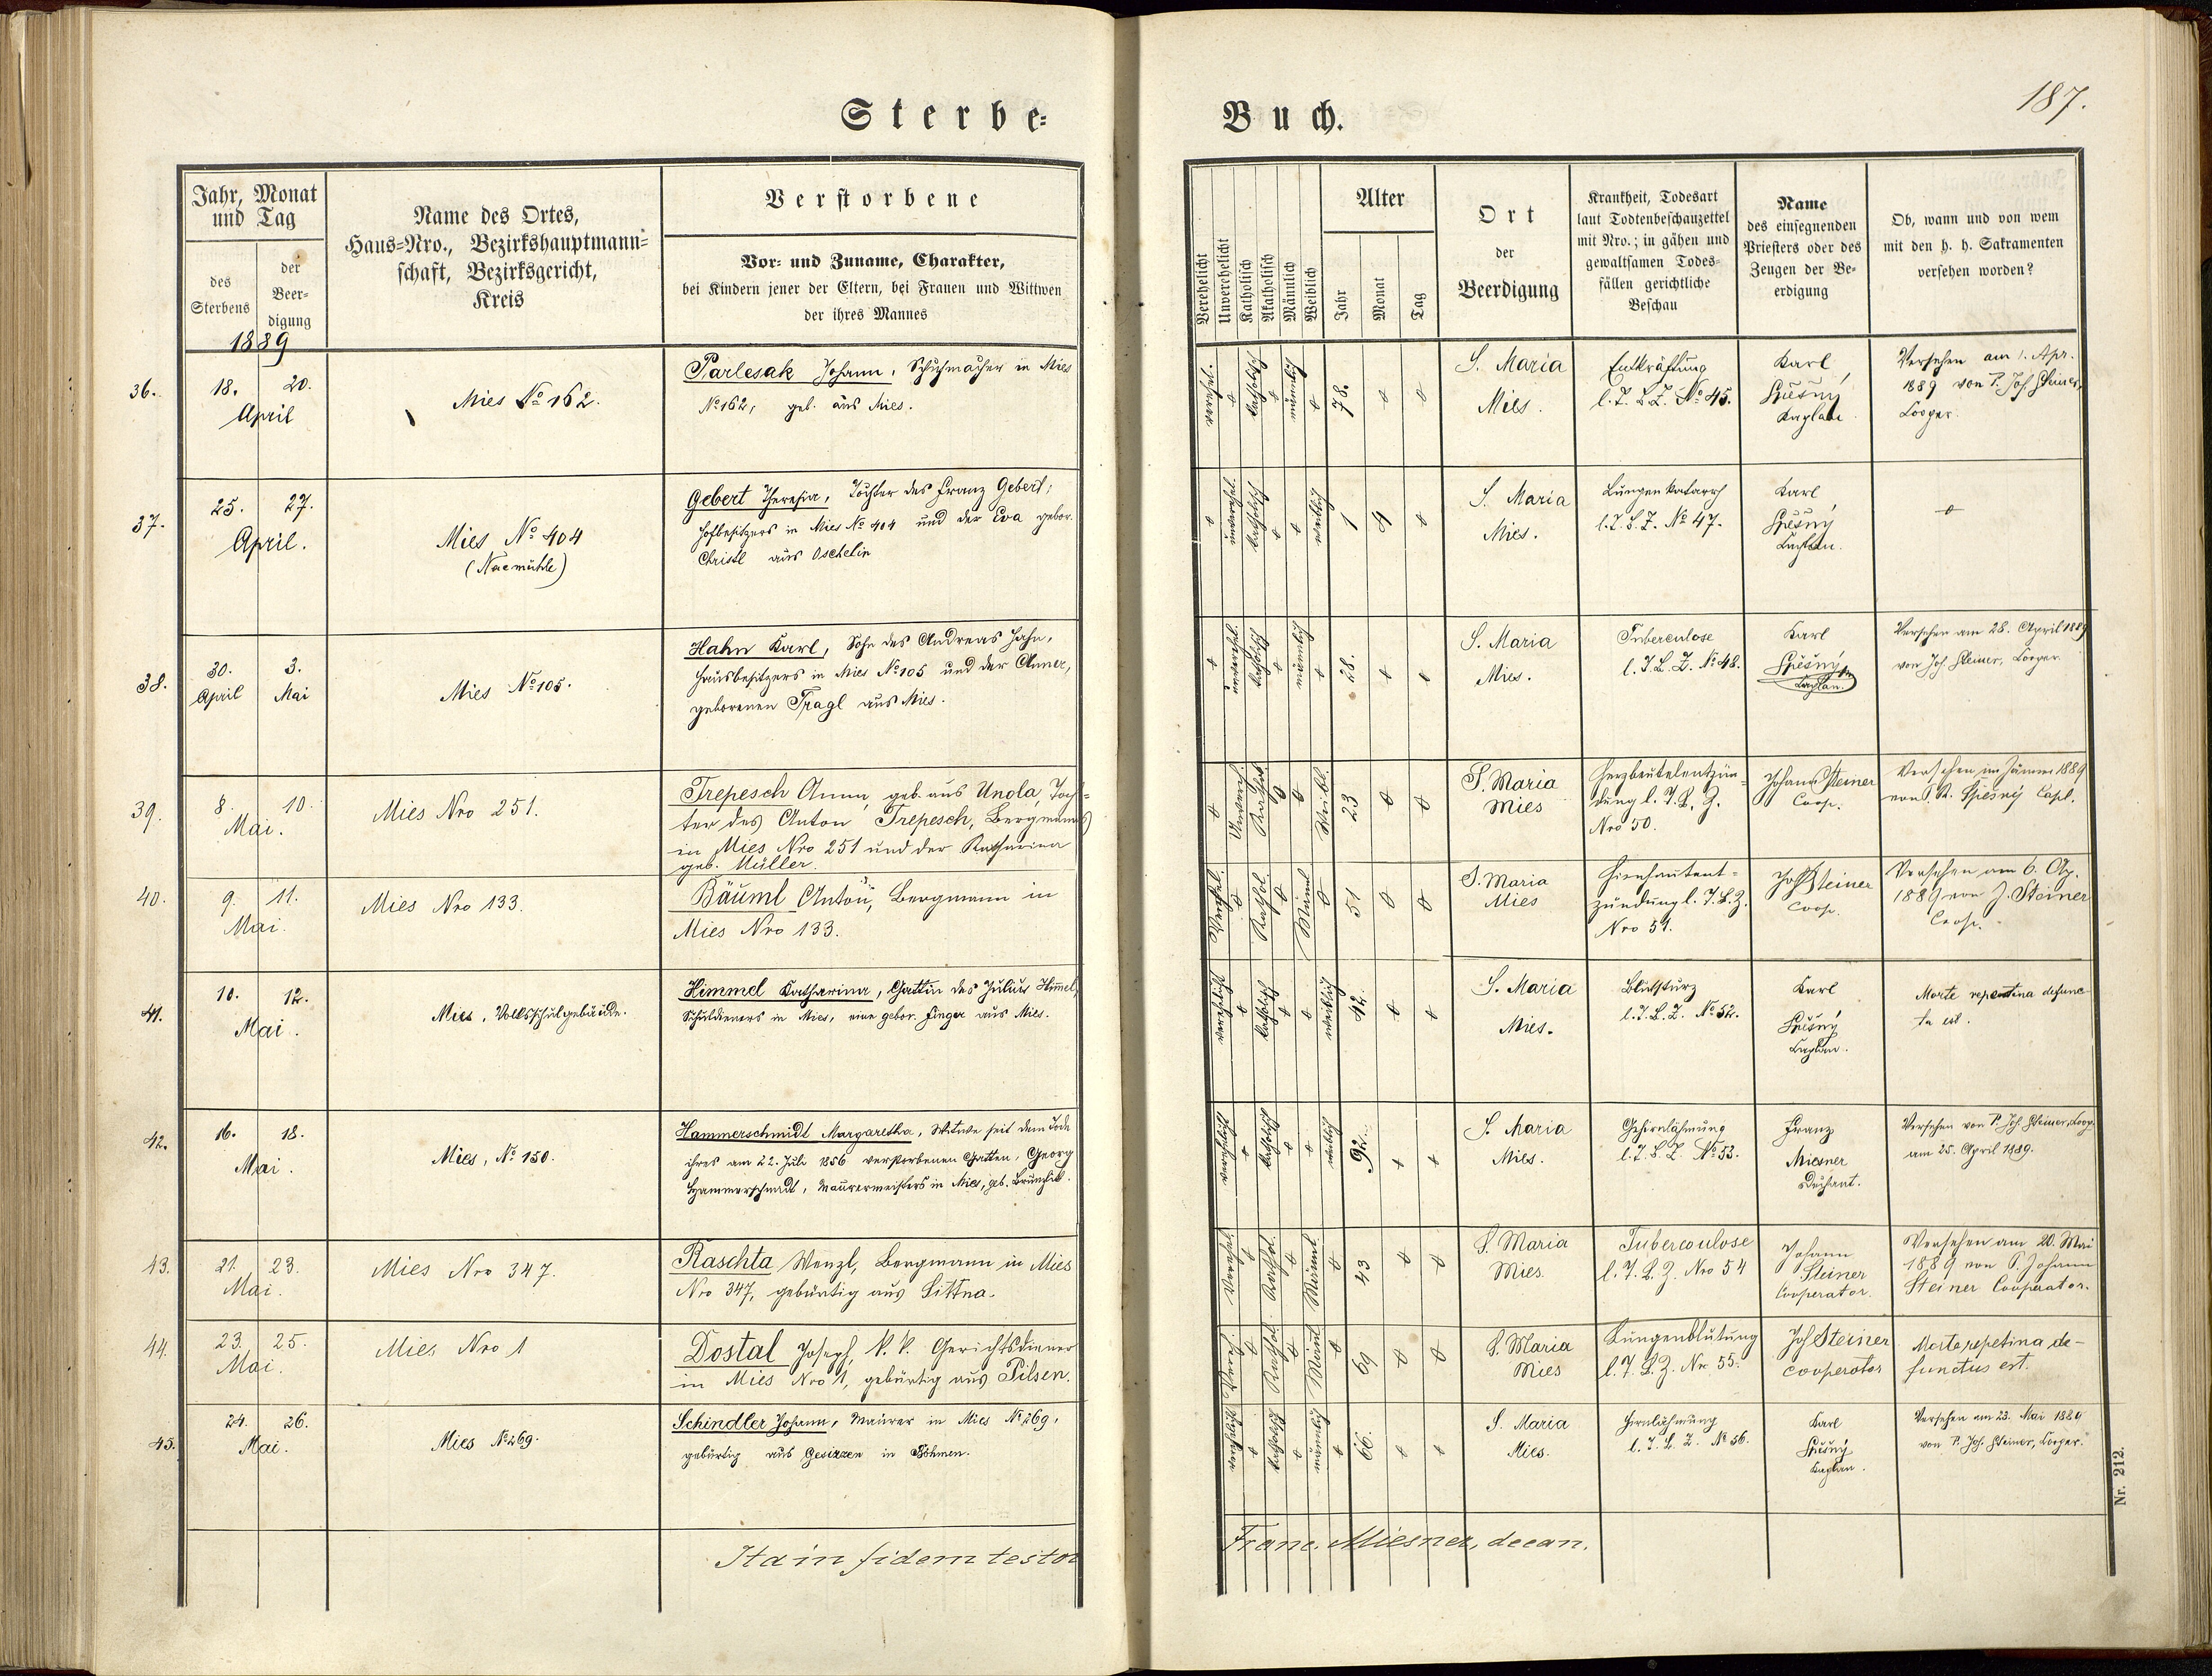 Sterbe-
Buch.
187.
Jahr, Monat
und Tag
des
Sterbens
der
Beer-
digung
1889
Name des Ortes,
Haus-Nro., Bezirkshauptmann-
schaft, Bezirksgericht,
Kreis
Verstorbene
Vor- und Zuname, Charakter,
bei Kindern jener der Eltern, bei Frauen und Wittwen
der ihres Mannes
Verehelicht
Unverehelicht
Katholisch
Akatholisch
Männlich
Weiblich
Alter
Jahr
Monat
Tag
Ort
der
Beerdigung
Krankheit, Todesart
laut Todtenbeschauzettel
mit Nro.; in gähen und
gewaltsamen Todes-
fällen gerichtliche
Beschau
Name
des einsegnenden
Priesters oder des
Zeugen der Be-
erdigung
Ob, wann und von wem
mit den h. h. Sakramenten
versehen worden?
36.
18. 20.
April
Mies No 162.
Parlesak Johann, Schuhmacher in Mies
No 162, geb. aus Mies.
verehel.
katholisch
männlich
78.
S. Maria
Mies.
Entkräftung
l. T. B. Z. No 45.
Karl
Spiešný
Kaplan
Versehen am 1. Apr.
1889 von P. Joh. Steiner,
Cooper.
37.
25. 27.
April.
Mies No 404
Gebert Theresia, Tochter des Franz Gebert,
Hofbesitzers in Mies No 404 und der Eva gebor.
Christl aus Oschelin
unverehel.
katholisch
weiblich
1 9
S. Maria
Mies.
Lungenkatarrh
l. T. B. Z. No 47.
Karl
Spiešný
Kaplan.
38.
30. 3.
April Mai
Mies No 105.
Hahn Karl, Sohn des Andreas Hahn,
Hausbesitzers in Mies No 105 und der Anna,
geborenen Tragl aus Mies.
unverehel.
katholisch
männlich
28.
S. Maria
Mies.
Tuberculose
l. T. B. Z. No 48.
Karl
Spiešný
Kaplan.
Versehen am 28. April 1889
von Joh. Steiner, Cooper.
39.
8. 10.
Mai.
Mies Nro 251.
Trepesch Anna, geb. aus Unola, Toch-
ter des Anton Trepesch, Bergmanns
in Mies Nro 251 und der Katharina
geb. Müller.
Unvereh.
Kathol.
Weibl.
23
S. Maria
Mies
Herzbeutelentzün-
dung l. T. B. Z.
Nro 50.
Johann Steiner
Coop.
Versehen im Jänner 1889
von K. Spiesný Capl.
40.
9. 11.
Mai.
Mies Nro 133.
Bäuml Anton, Bergmann in
Mies Nro 133.
Verehel.
Kathol.
Männl
51
S. Maria
Mies
Hirnhautent-
zündung l. T. B. Z.
Nro 51.
Joh Steiner
Coop.
Versehen am 6. Ap.
1889 von J. Steiner
Coop.
41.
10. 12.
Mai.
Mies, Volksschulgebäude.
Himmel Katharina, Gattin des Julius Himmel,
Schuldieners in Mies, eine gebor. Finger aus Mies.
verehelicht
katholisch
weiblich
42.
S. Maria
Mies.
Blutsturz
l. T. B. Z. No 52.
Karl
Spiešný
Kaplan.
Morte repentina defunc-
ta est.
42.
16. 18.
Mai.
Mies, No 150.
Hammerschmidt Margaretha, Witwe seit dem Tode
ihres am 22. Juli 1856 verstorbenen Gatten, Georg
Hammerschmidt, Maurermeisters in Mies, geb.
verehelicht
katholisch
weiblich
92.
S. Maria
Mies.
Gehirnlähmung
l. T. B. Z. No 53.
Franz
Miesner
Dechant.
Versehen von P. Joh. Steiner, Coop.
am 25. April 1889.
43.
21. 23.
Mai.
Mies Nro 347.
Raschta Wenzl, Bergmann in Mies
Nro 347, gebürtig aus Sittna.
Verehel
Kathol.
Männl.
43
S. Maria
Mies.
Tubercoulose
l. T. B. Z. Nro 54
Johann
Steiner
Cooperator.
Versehen am 20. Mai
1889 von P. Johann
Steiner Cooperator.
44.
23. 25.
Mai.
Mies Nro 1
Dostal Joseph, k. k. Gerichtsdiener
in Mies Nro 1, gebürtig aus Pilsen.
Kathol.
Männl
69
S. Maria
Mies
Lungenblutung
l. T. B. Z. Nr. 55.
Joh Steiner
Cooperator
Morte repetina de-
functus est.
45.
24. 26.
Mai.
Mies No 269.
Schindler Johann, Maurer in Mies No 269,
gebürtig aus Gesizzen in Böhmen.
verehelicht
katholisch
männlich
66.
S. Maria
Mies.
Hirnlähmung
l. T. B. Z. No 56.
Karl
Spiešný
Kaplan.
Versehen am 23. Mai 1889
von P. Joh. Steiner, Cooper.
Ita in fidem testor
Franc. Miesner, decan.
Nr. 212.